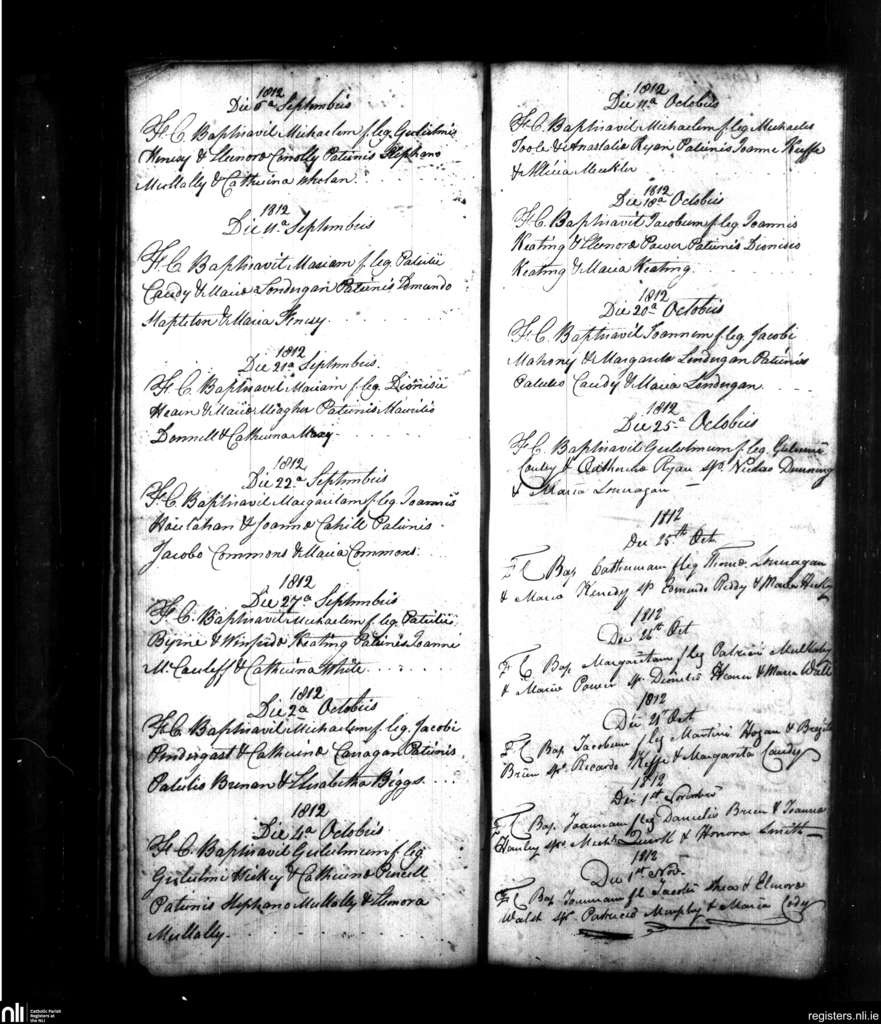 1812
Die 6a Septembris
F. C. Baptisavit Michaelem f. leg. Gulielmi
& Elenora Conolly Patrinis Stephano
Mullally & Catherina Whelan
1812
Die 11a Septembris
F. C. Baptisavit Mariam f. leg. Patritii
Caudy & Maria Londergan Patrinis Edmundo
Mapleton & Maria
1812
Die 21a Septembris
F. C. Baptisavit Mariam f. leg. Dionisii
Hearn & Maria Meagher Patrinis Mauritio
Donnell & Catherina
1812
Die 22a Septembris
F. C. Baptisavit Margaritam f. leg. Joannis
& Joanna Cahill Patrinis
Jacobo Commons & Maria Commons
1812
Die 27a Septembris
F. C. Baptisavit Michaelem f. leg. Patritii
Byrne & Winifrida Keating Patrinis Joanne
& Catherina White
1812
Die 2a Octobris
F. C. Baptisavit Michaelem f. leg. Jacobi
Pendergast & Catherina Carragan Patrinis
Patritio Brenan & Elisabetha Biggs
1812
Die 4a Octobris
F. C. Baptisavit Gulielmum f. leg.
Gulielmi Hickey & Catherina Purcell
Patrinis Stephano Mullally & Elenora
Mullally
1812
Die 11a Octobris
F. C. Baptisavit Michaelem f. leg. Michaelis
Toole & Anastatia Ryan Patrinis Joanne Keeffe
& Alicia
1812
Die 18a Octobris
F. C. Baptisavit Jacobum f. leg. Joannis
Keating & Elenora Power Patrinis Dionisio
Keating & Maria Keating
1812
Die 20a Octobris
F. C. Baptisavit Joannem f. leg. Jacobi
Mahony & Margarita Londergan Patrinis
Patritio Caudy & Maria Londergan
1812
Die 25a Octobris
F. C. Baptisavit Gulielmum f. leg. Gulielmi
& Catherina Ryan sps. Niclao
& Maria Lonnragan
1812
Die 25th Oct
F C Bap Catherinam f leg Thoma Lonnragan
& Maria Kenedy sp Edmundo Reddy & Maria
1812
Die 26th Oct
F C Bap Margaritam f leg Patricii Mullally
& Maria Power sp. Dionisio Hearn & Maria Wall
1812
Die Oct
F. C Bap Jacobum f leg Martini Hogan & Brigita
Brien sps. Ricardo Keffe & Margarita Caudy
1812
Die 1st Novembris
F C Bap. Joannam f leg Danielis Brien & Joanna
Hanley sps Mich. Quirk & Honora Smith
1812
Die 1st Nov.
F C Bap Joannam fl Jacobi Shea & Elenora
Walsh sps. Patricio Murphy & Maria Cody
nli
Catholic Parish
Registers at
the NLI
registers.nli.ie